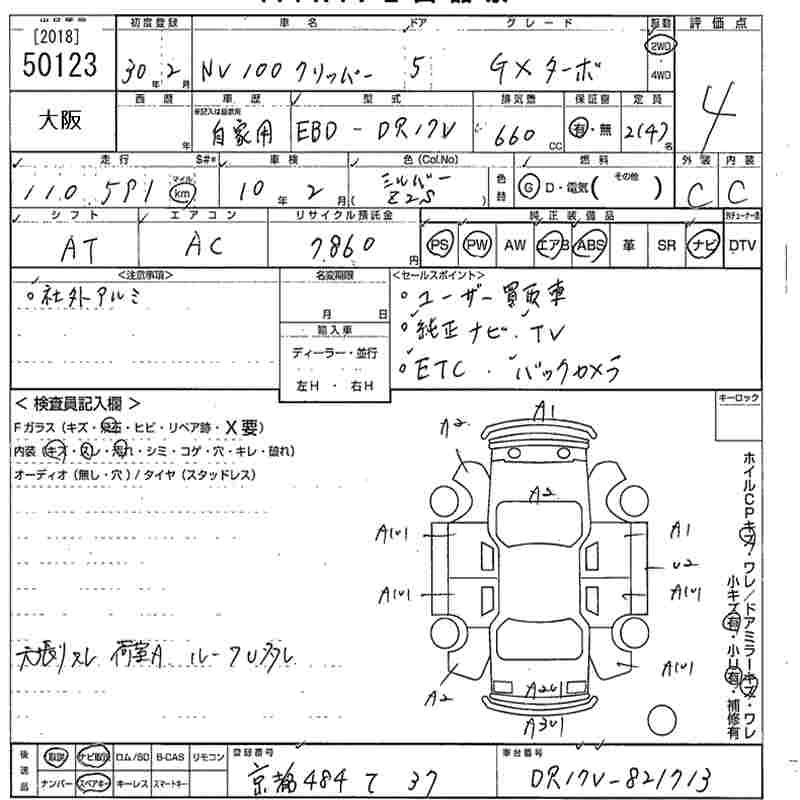 [2018]
50123
初度登録 車名 ドア グレード 駆動 評価点
30年 2月 NV100クリッパー 5 GXターボ 2WD 4WD 4
大阪
西暦 車歴 型式 排気量 保証書 定員
年 ※記入は録歴用 自家用 EBD-DR17V 660 CC 有・無 2(4)名
走行 S#* 車検 色(Col.No) 色替 燃料 その他 外装 内装
110,591 マイル km 10年 2月 シルバー Z2S G D・電気( ) C C
シフト エアコン リサイクル預託金 純正装備品
AT AC 7860円 PS PW AW エアB ABS 革 SR ナビ DTV
<注意事項> 名変期限 <セールスポイント>
社外アルミ 月 日 ・ユーザー買取車
輸入車 ・純正ナビ・TV
ディーラー・並行 ・ETC ・バックカメラ
左H・右H
<検査員記入欄> キーロック
Fガラス(キズ・飛石・ヒビ・リペア跡・X要)
内装(キズ・スレ・汚れ・シミ・コゲ・穴・キレ・破れ)
オーディオ(無し・穴)/タイヤ(スタッドレス)
A1
A2
A2
A1U1 A1
U2
A1U1 A1U1
天張リスレ 荷室A
A2 A2U1 A1U1
A3U1
ホイルCPキズ・ワレ/ドアミラーキズ・ワレ
小キズ有・小U有・補修有
後送品 取説 ナビ取説 ロム/SD B-CAS リモコン 登録番号 車台番号
ナンバー スペアキー キーレス スマートキー 京都484て37 DR17V-821713